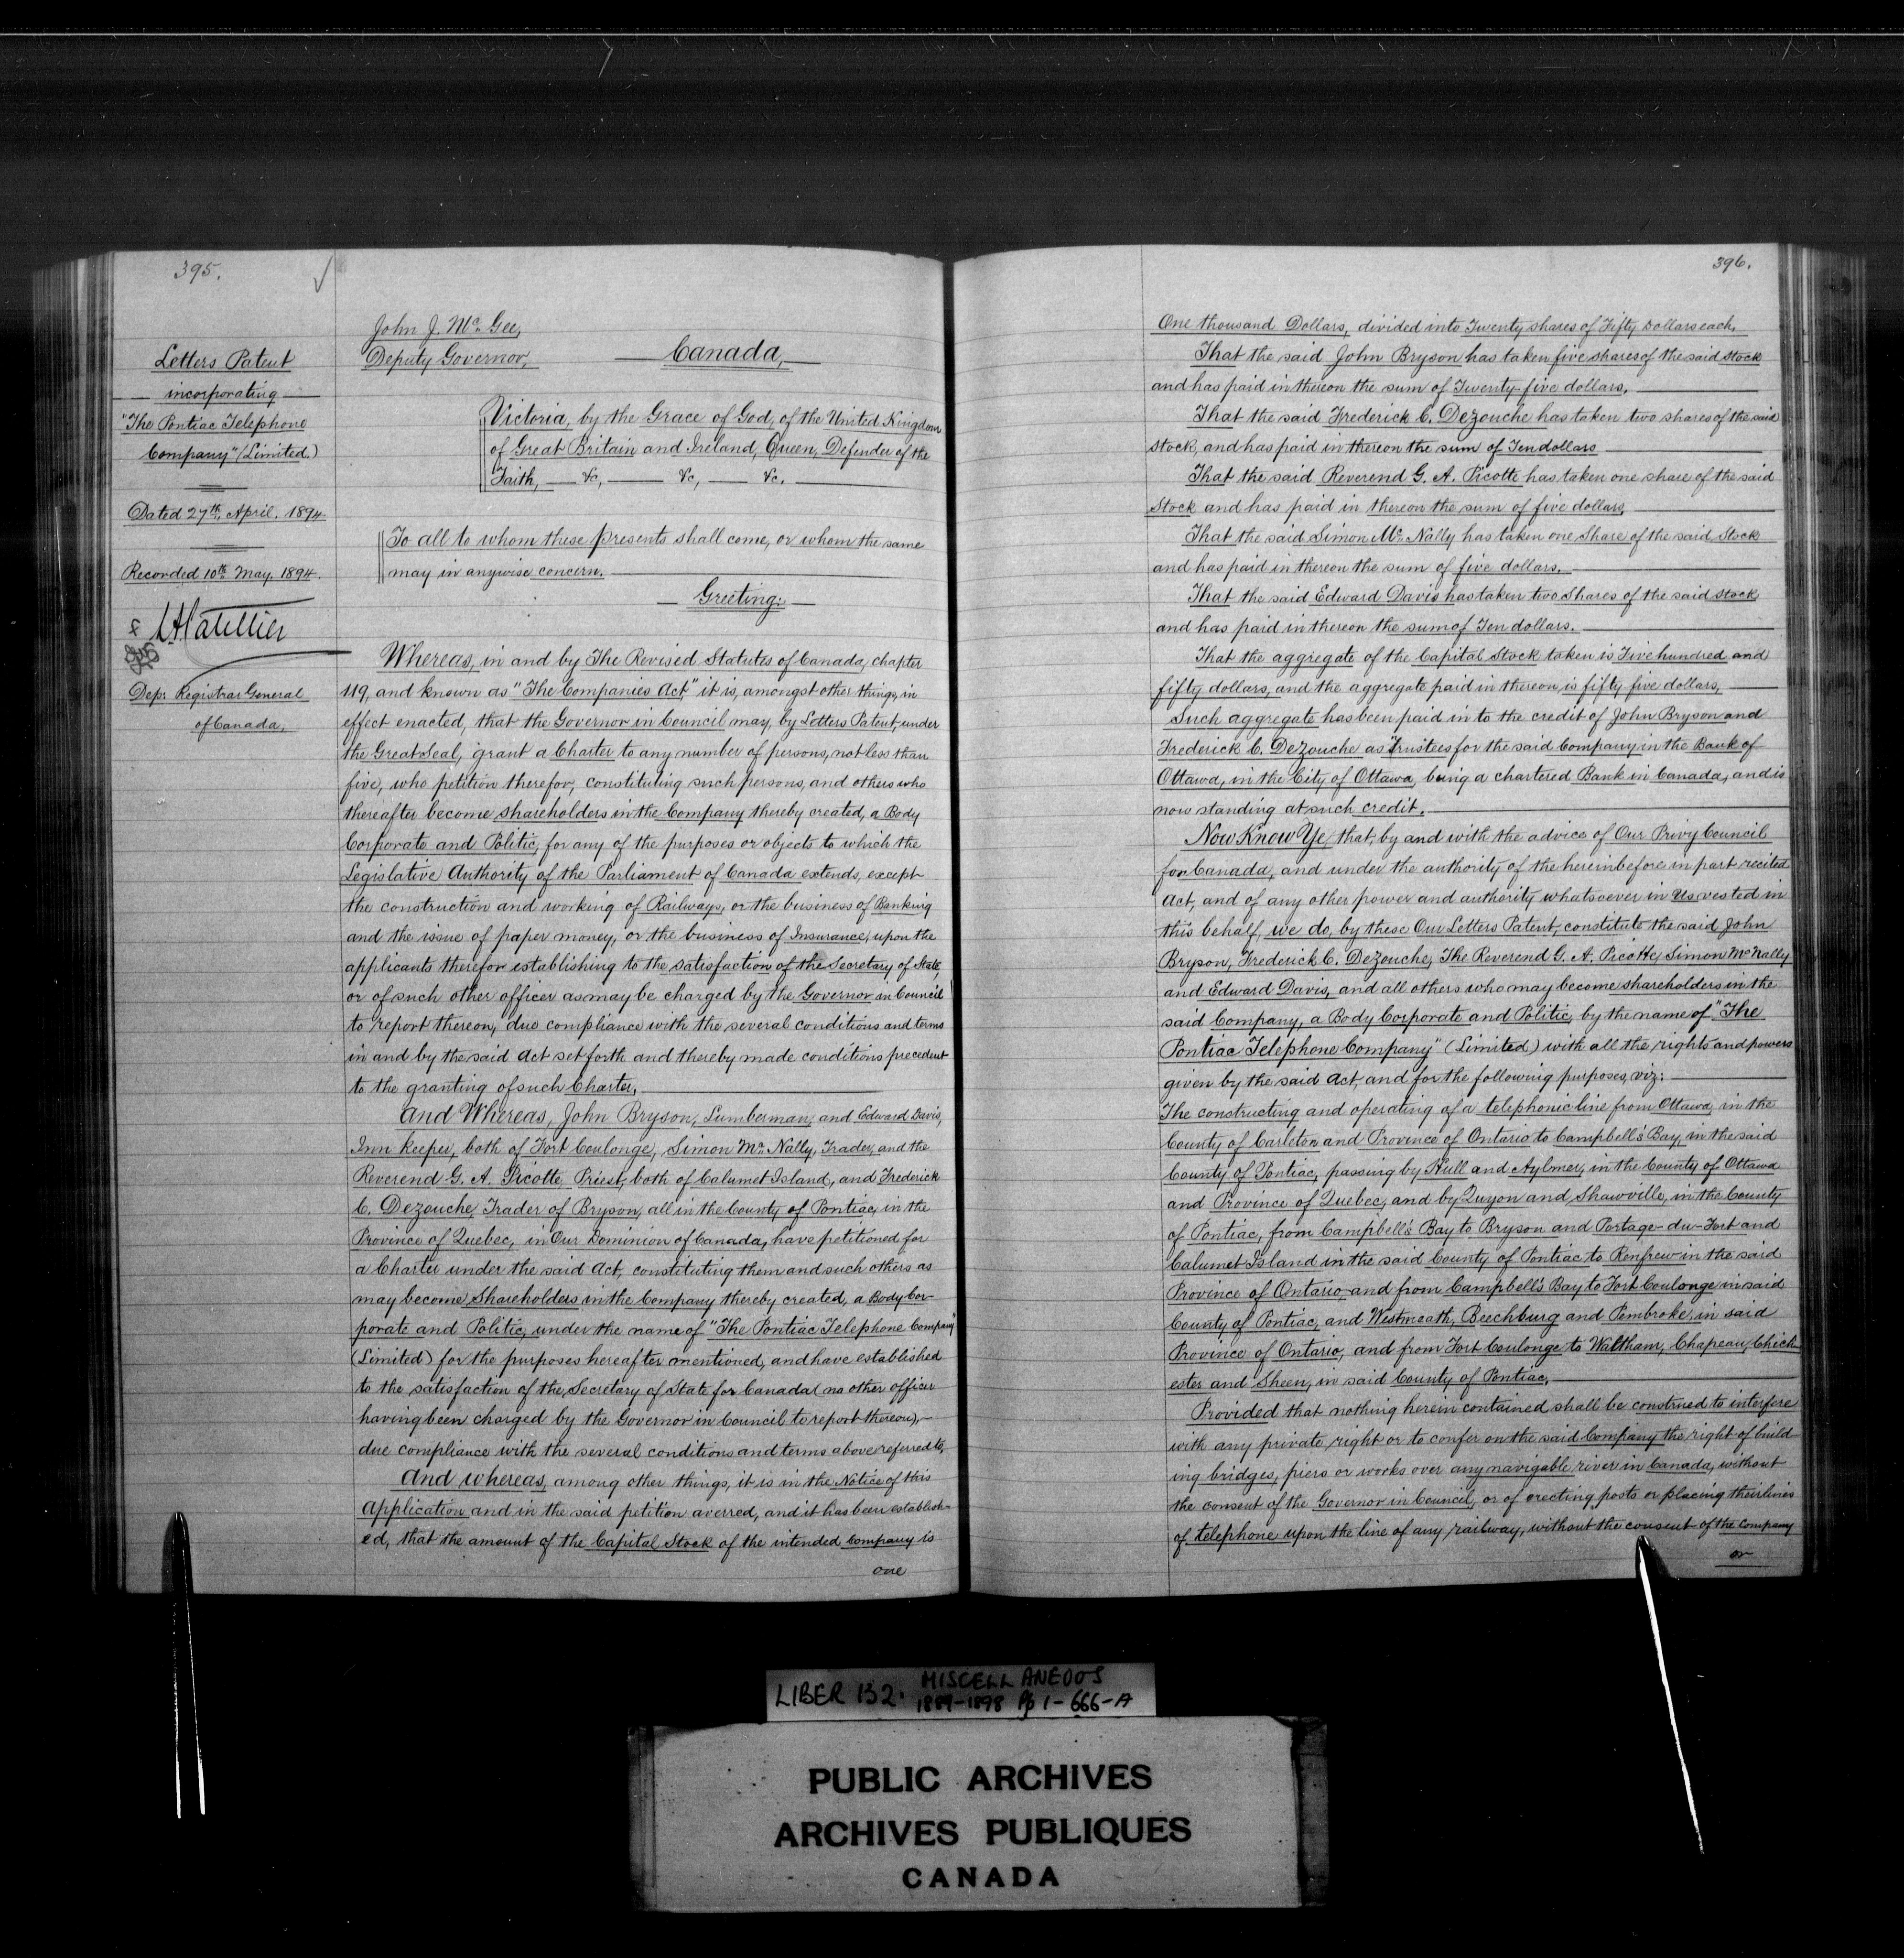 395.
Letters Patent
incorporating
"The Pontiac Telephone
Company" (Limited.)
Dated 27th. April. 1894.
Recorded 10th May. 1894.
Dep: Registrar General
of Canada,
John J. McGee,
Deputy Governor,
Canada,
Victoria, by the Grace of God, of the United Kingdom
of Great Britain and Ireland, Queen, Defender of the
Faith, — &c, — &c, — &c. —
To all to whom these presents shall come, or whom the same
may in anywise concern.
— Greeting: —
Whereas, in and by The Revised Statutes of Canada, chapter
119, and known as "The Companies Act," it is, amongst other things, in
effect enacted, that the Governor in Council may, by Letters Patent, under
the Great Seal, grant a Charter to any number of persons, not less than
five, who petition therefor, constituting such persons, and others who
thereafter become shareholders in the Company thereby created, a Body
Corporate and Politic, for any of the purposes or objects to which the
Legislative Authority of the Parliament of Canada extends, except
the construction and working of Railways, or the business of Banking
and the issue of paper money, or the business of Insurance, upon the
applicants therefor establishing to the satisfaction of the Secretary of State,
or of such other officer as may be charged by the Governor in Council
to report thereon, due compliance with the several conditions and terms
in and by the said Act set forth and thereby made conditions precedent
to the granting of such Charter.
And Whereas, John Bryson, Lumberman, and Edward Davis,
Inn keeper, both of Fort Coulonge, Simon Mc. Nally, Trader, and the
Reverend G. A. Picotte, Priest, both of Calumet Island, and Frederick
C. Dezouche, Trader of Bryson, all in the County of Pontiac, in the
Province of Quebec, in Our Dominion of Canada, have petitioned for
a Charter under the said Act, constituting them and such others as
may become Shareholders in the Company thereby created, a Body Cor-
porate and Politic, under the name of "The Pontiac Telephone Company"
(Limited) for the purposes hereafter mentioned, and have established
to the satisfaction of the Secretary of State for Canada (no other officer
having been charged by the Governor in Council to report thereon), —
due compliance with the several conditions and terms above referred to,
And whereas, among other things, it is in the Notice of this
Application and in the said petition averred, and it has been establish-
ed, that the amount of the Capital Stock of the intended Company is
one
396.
One thousand Dollars, divided into Twenty shares of Fifty Dollars each.
That the said John Bryson has taken five shares of the said Stock
and has paid in thereon the sum of Twenty-five dollars.
That the said Frederick C. Dezouche has taken two shares of the said
Stock, and has paid in thereon the sum of Ten dollars
That the said Reverend G. A. Picotte has taken one share of the said
Stock and has paid in thereon the sum of five dollars,
That the said Simon Mc. Nally has taken one Share of the said Stock
and has paid in thereon the sum of five dollars.
That the said Edward Davis has taken two Shares of the said Stock
and has paid in thereon the sum of Ten dollars.
That the aggregate of the Capital Stock taken is Five hundred and
fifty dollars, and the aggregate paid in thereon, is fifty five dollars,
Such aggregate has been paid in to the credit of John Bryson and
Frederick C. Dezouche as Trustees for the said Company in the Bank of
Ottawa, in the City of Ottawa, being a chartered Bank in Canada, and is
now standing at such credit.
Now Know Ye, that, by and with the advice of Our Privy Council
for Canada, and under the authority of the hereinbefore in part recited
Act, and of any other power and authority whatsoever in Us vested in
this behalf, we do, by these Our Letters Patent, constitute the said John
Bryson, Frederick C. Dezouche, The Reverend G. A. Picotte, Simon McNally
and Edward Davis, and all others who may become shareholders in the
said Company, a Body Corporate and Politic, by the name of "The
Pontiac Telephone Company" (Limited) with all the rights and powers
given by the said Act, and for the following purposes, viz: —
The constructing and operating of a telephonic line from Ottawa, in the
County of Carleton and Province of Ontario to Campbell's Bay, in the said
County of Pontiac, passing by Hull and Aylmer, in the County of Ottawa
and Province of Quebec, and by Quyon and Shawville, in the County
of Pontiac, from Campbell's Bay to Bryson and Portage-du-Fort and
Calumet Island in the said County of Pontiac to Renfrew in the said
Province of Ontario, and from Campbell's Bay to Fort Coulonge in said
County of Pontiac, and Westmeath, Beechburg and Pembroke, in said
Province of Ontario, and from Fort Coulonge to Waltham, Chapeau, Chich-
ester and Sheen, in said County of Pontiac.
Provided that nothing herein contained shall be construed to interfere
with any private right or to confer on the said Company the right of build-
ing bridges, piers or works over any navigable river in Canada, without
the consent of the Governor in Council, or of erecting posts or placing their lines
of telephone upon the line of any railway, without the consent of the Company
or
LIBER 132. MISCELLANEOUS
1889-1898 Pp 1-666-A
PUBLIC ARCHIVES
ARCHIVES PUBLIQUES
CANADA